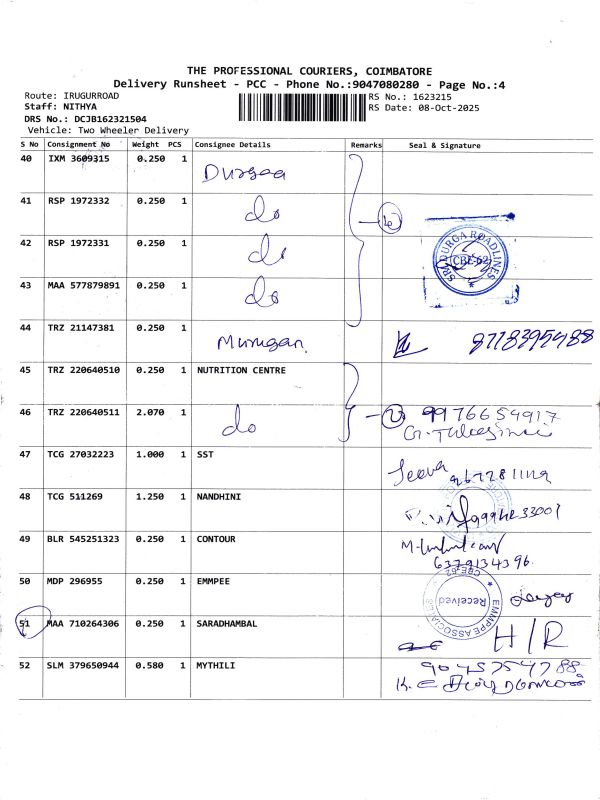 THE PROFESSIONAL COURIERS, COIMBATORE
Delivery Runsheet - PCC - Phone No.:9047080280 - Page No.:4
Route: IRUGURROAD RS No.: 1623215
Staff: NITHYA RS Date: 08-Oct-2025
DRS No.: DCJB162321504
Vehicle: Two Wheeler Delivery
S No Consignment No Weight PCS Consignee Details Remarks Seal & Signature
40 IXM 3609315 0.250 1 Durgaa
41 RSP 1972332 0.250 1 do
42 RSP 1972331 0.250 1 do
SRI DURGA ROADLINES
CBE-62
43 MAA 577879891 0.250 1 do
44 TRZ 21147381 0.250 1 Murugan 8778395488
45 TRZ 220640510 0.250 1 NUTRITION CENTRE
46 TRZ 220640511 2.070 1 do 2 9976654917
47 TCG 27032223 1.000 1 SST Jeeva
48 TCG 511269 1.250 1 NANDHINI
49 BLR 545251323 0.250 1 CONTOUR
6379134396
50 MDP 296955 0.250 1 EMMPEE
EMMPEE ASSOCIATES CBE-62
Received
51 MAA 710264306 0.250 1 SARADHAMBAL H/R
52 SLM 379650944 0.580 1 MYTHILI 9045754788